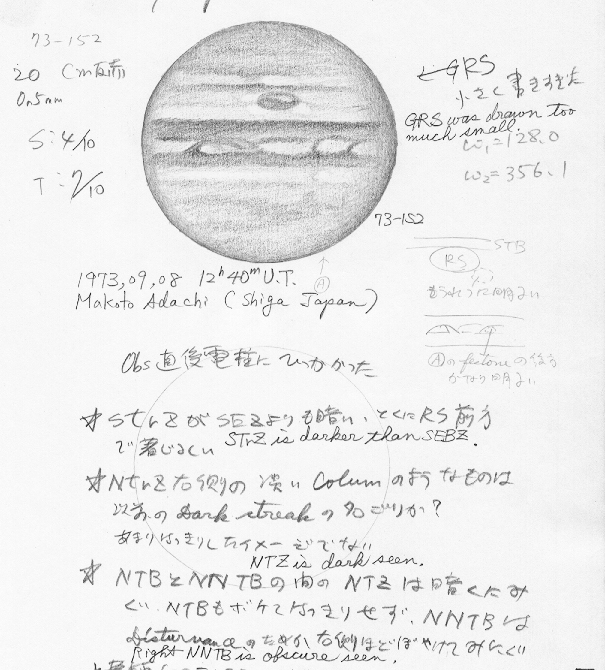 73-152
20 cm反射
Or5mm
S:4/10
T:7/10
GRS
小さく書きすぎた
GRS was drawn too
much small.
ω₁=128.0
ω₂=356.1
73-152
Ⓐ
1973,09,08 12ʰ40ᵐ U.T.
Makoto Adachi (Shiga Japan)
STB
RS
Ⓐのfestoneの後方
がなり明るい
Obs直後電柱にひっかかった
☆STrZがSEZよりも暗い、とくにRS前方
で著じるしい STrZ is darker than SEBZ.
☆NTrZ右側の淡い Columのようなものは
以前のDark streakの名ごりか?
あまりはっきりしたイメージでない
NTZ is dark seen.
☆NTBとNNTBの内のNTZは暗くにみ
NTBもボケてはっきりせず、NNTBは
Disturvanceのためか右側ほどぼやけてみにくい
Right NNTB is obscure seen.